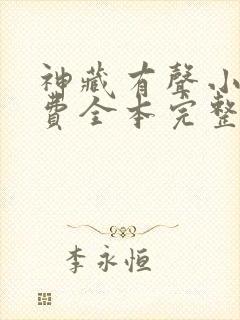 神藏有聲小
費全本完整
李永恒